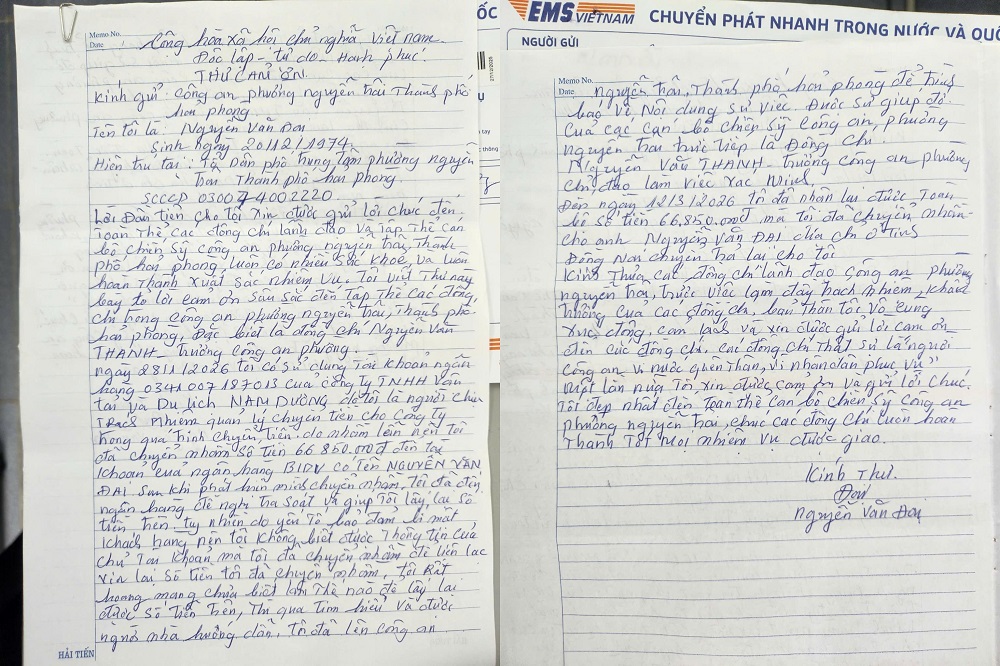 Memo No.
Date
Cộng hòa xã hội chủ nghĩa Việt nam
Độc lập - tự do - Hạnh phúc.
THƯ CẢM ƠN.
Kính gửi: Công an phường nguyễn trãi Thành phố
hải phòng.
Tên tôi là: Nguyễn Văn Đoi
Sinh ngày 20/12/1974
Hiện trú tại: Tổ Dân phố hưng phường nguyễn
trãi Thành phố hải phòng.
SCCCD 030074002220
Lời Đầu tiên cho tôi xin được gửi lời chúc đến
toàn thể các đồng chí lãnh đạo và tập thể cán
bộ chiến sỹ công an phường nguyễn trãi, Thành
phố hải phòng, luôn có nhiều sức khỏe, và luôn
hoàn thành xuất sắc nhiệm vụ. Tôi viết thư này
bày tỏ lời cảm ơn sâu sắc đến tập thể các đồng
chí trong công an phường nguyễn trãi, thành phố
hải phòng, Đặc biệt là đồng chí Nguyễn Văn
THANH - trưởng công an phường.
ngày 28/1/2026 tôi có sử dụng Tài khoản ngân
hàng 0341007187013 của công ty TNHH vận
tải và Du lịch NAM DƯƠNG do tôi là người chịu
trách nhiệm quản lý chuyển tiền cho công ty
trong quá trình chuyển tiền, do nhầm lẫn nên tôi
đã chuyển nhầm số tiền 66 850.000đ đến tài
khoản của ngân hàng BIDV có tên NGUYỄN VĂN
ĐẠI sau khi phát hiện mình chuyển nhầm, tôi đã đến
ngân hàng đề nghị tra soát và giúp tôi lấy lại số
tiền trên. tuy nhiên do yếu tố bảo đảm bí mật
khách hàng nên tôi không biết được thông tin của
chủ tài khoản mà tôi đã chuyển nhầm để liên lạc
xin lại số tiền tôi đã chuyển nhầm, tôi rất
hoang mang chưa biết làm thế nào để lấy lại
được số tiền trên, thì qua tìm hiểu và được
người nhà hướng dẫn, tôi đã lên công an
HẢI TIẾN
EMS VIETNAM CHUYỂN PHÁT NHANH TRONG NƯỚC VÀ QUỐ
NGƯỜI GỬI
Memo No.
Date
nguyễn trãi, Thành phố hải phòng để trình
báo về nội dung sự việc. Được sự giúp đỡ
của các cán bộ chiến sỹ công an, phường
nguyễn trãi trực tiếp là Đồng chí
Nguyễn Văn THANH - trưởng công an phường
chỉ đạo làm việc xác minh.
Đến ngày 12/3/2026 tôi đã nhận lại được toàn
bộ số tiền 66.850.000đ mà tôi đã chuyển nhầm
cho anh Nguyễn Văn ĐẠI địa chỉ ở tỉnh
Đồng Nai chuyển trả lại cho tôi
Kính Thưa các đồng chí lãnh đạo công an phường
nguyễn trãi, trước việc làm đầy trách nhiệm, khẩn
trương của các đồng chí, bản thân tôi vô cùng
xúc động, cảm kích và xin được gửi lời cảm ơn
đến các đồng chí, các đồng chí thật sự là người
công an vì nước quên thân, vì nhân dân phục vụ
Một lần nữa tôi xin được cảm ơn và gửi lời chúc
tốt đẹp nhất đến toàn thể cán bộ chiến sỹ công an
phường nguyễn trãi, chúc các đồng chí luôn hoàn
thành tốt mọi nhiệm vụ được giao.
Kính Thư.
Đoi
Nguyễn Văn Đoi